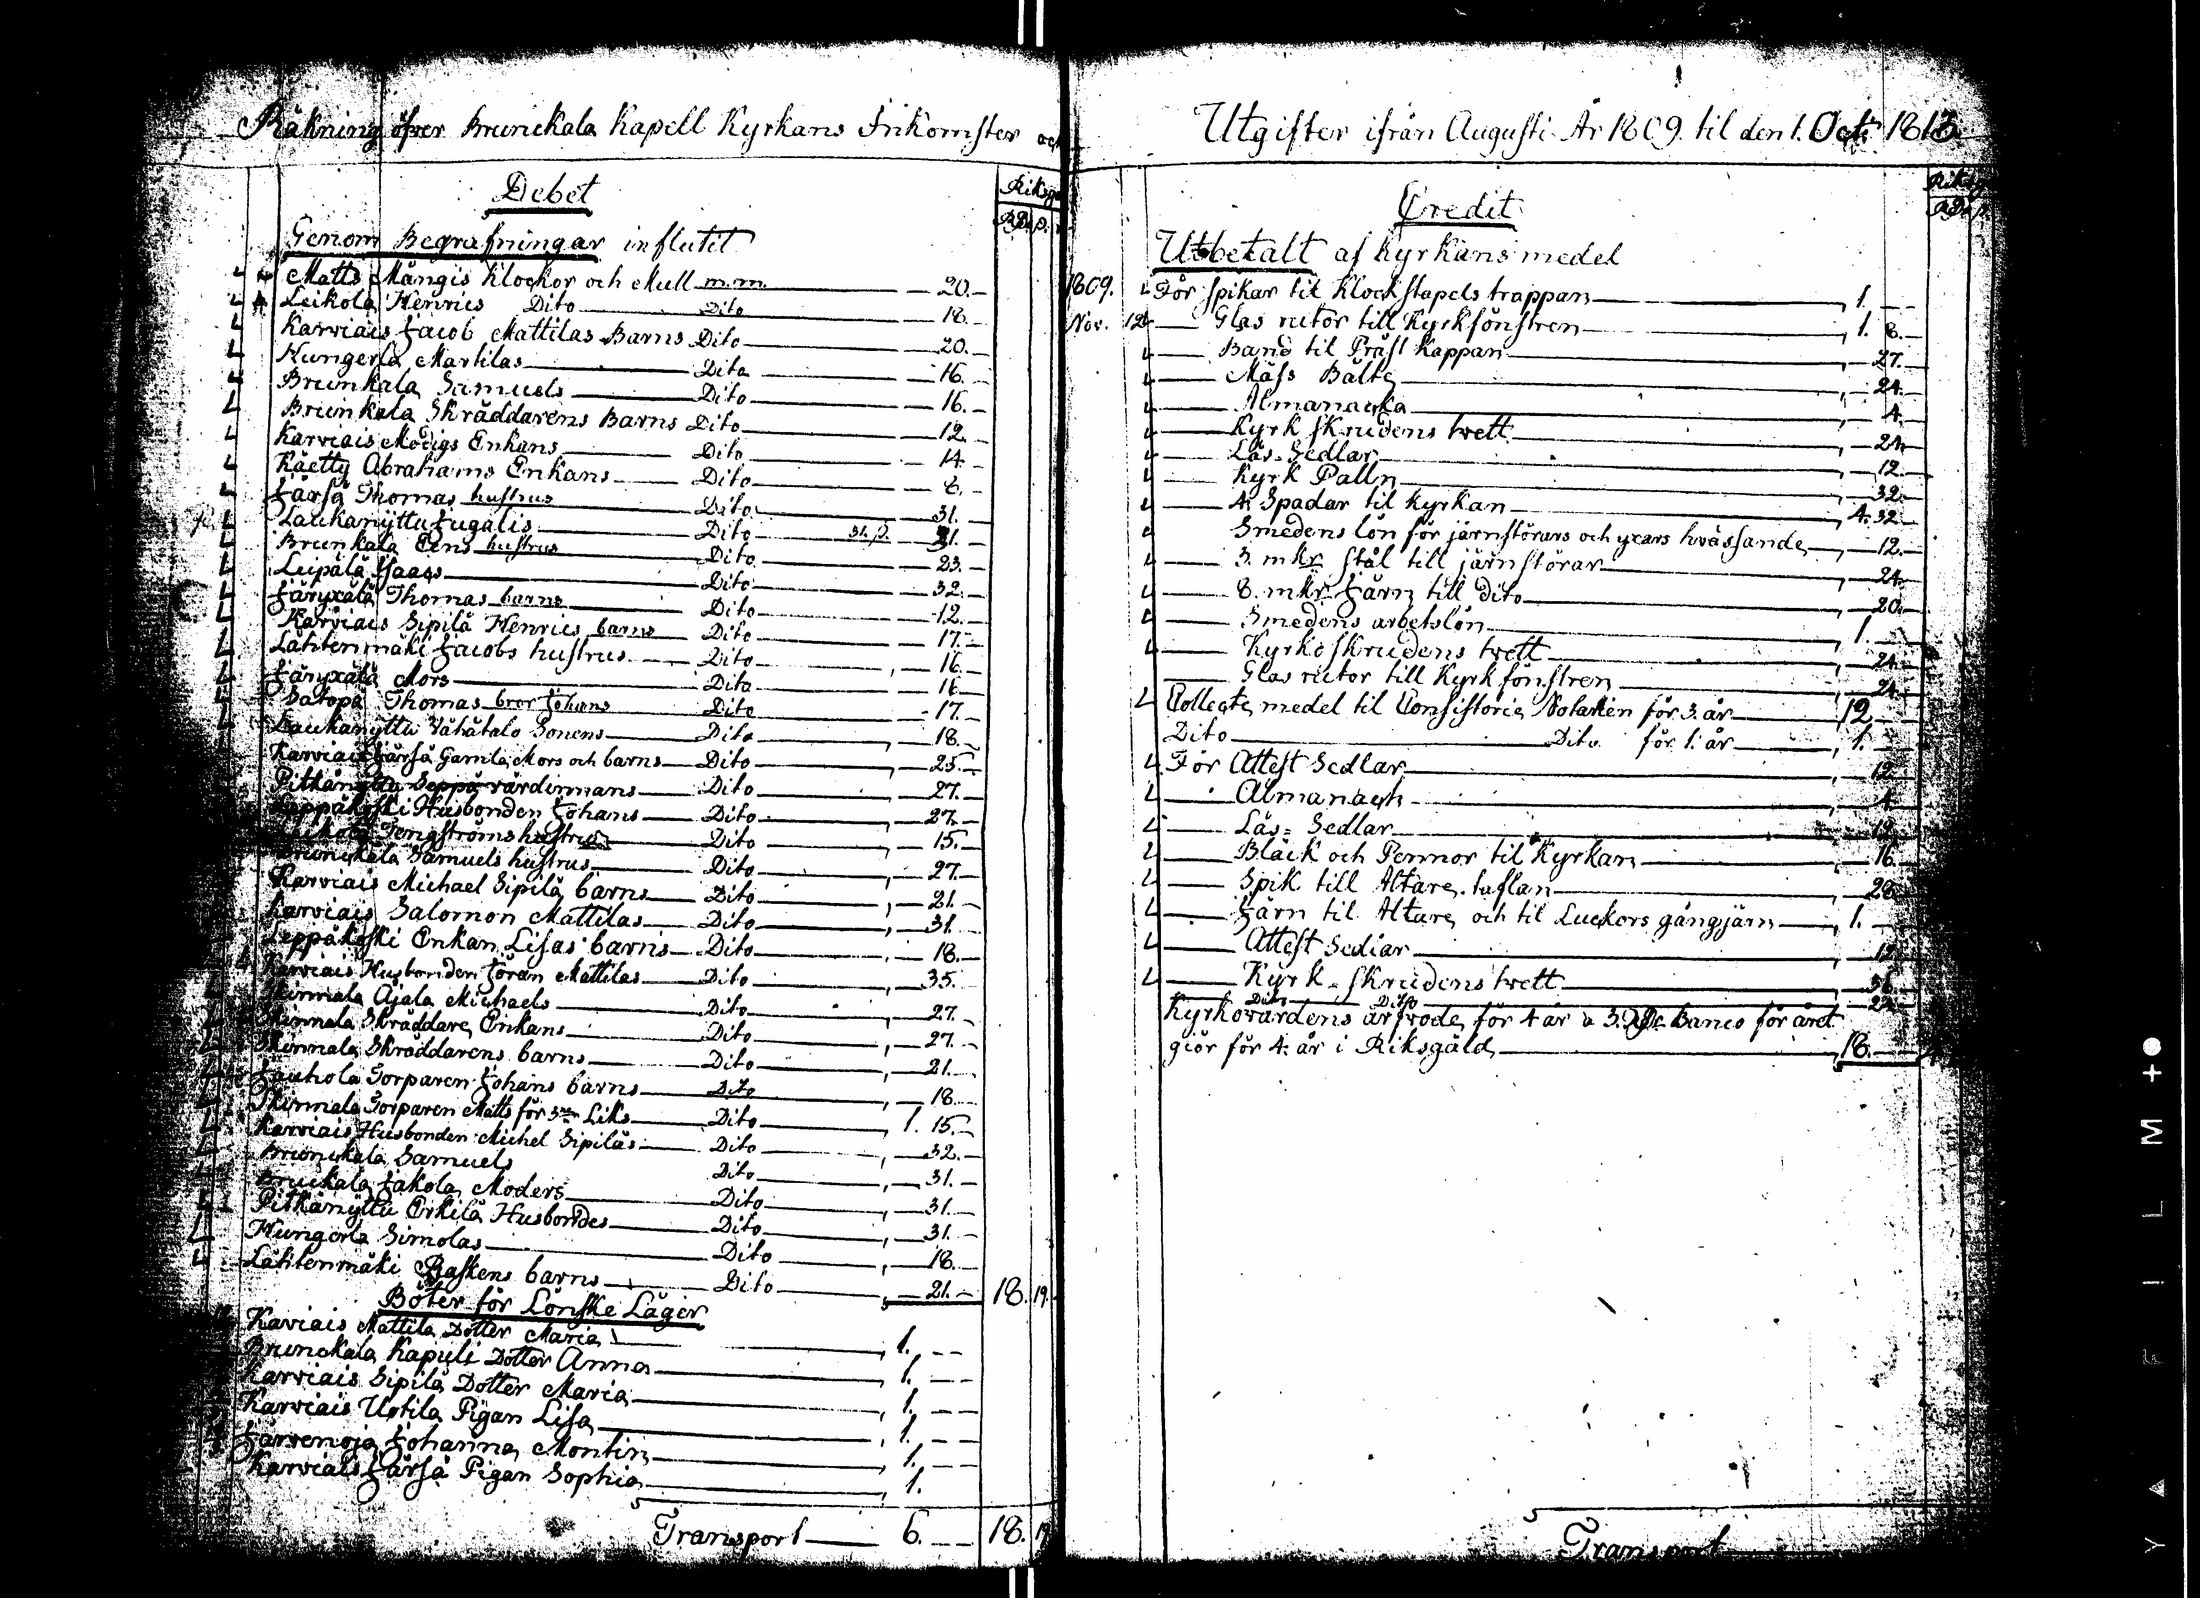 Räkning öfver Brunckala Kapell Kyrkans Inkomster och
Debet
Riksg
RD. ß.
Genom Begrafningar influtit
Matts Mångis Klockor och Mull m.m. 20.
Leikola Henrics Dito Dito 18.
Karviais Jacob Mattilas Barns Dito 20.
Kungerla Martilas Dito 16.
Brunkala Samuels Dito 16.
Brunkala Skräddarens Barns Dito 12.
Karviais Modigs Enkans Dito 14.
Käetty Abrahams Enkans Dito 8.
Järsä Thomas hustrus Dito 31.
Laukanyttu Jugalis Dito 31.ß. 31.
Brunkala Eens hustrus Dito 23.
Leipälä Isaacs Dito 32.
Jänyxälä Thomas barns Dito 12.
Karviais Sipilä Henrics barns Dito 17.
Lähtenmäki Jacobs hustrus Dito 16.
Jänyxälä Mors Dito 16.
Satopä Thomas bror Johans Dito 17.
Laukanyttu Vähätalo Sonens Dito 18.
Karviais Järsä Gamla Mors och barns Dito 25.
Pitkänyttu Seppä värdinnans Dito 27.
Leppäkoski Husbonden Johans Dito 27.
Tengströms hustrus Dito 15.
Brunckala Samuels hustrus Dito 27.
Karviais Michael Sipilä barns Dito 21.
Karviais Salomon Mattilas Dito 31.
Leppäkoski Enkan Lisas barns Dito 18.
Karviais Husbonden Jöran Mattilas Dito 35.
Skinnala Ajala Michaels Dito 27.
Skinnala Skräddare Enkans Dito 27.
Skinnala Skräddarens barns Dito 21.
Jauhola Torparen Johans barns Dito 18.
Skinnala Torparen Matts för 3ne Liks Dito 1. 15.
Karviais Husbonden Michel Sipiläs Dito 32.
Brunckala Samuels Dito 31.
Bruckala Jakola Moders Dito 31.
Pitkänyttu Erkilä Husbondes Dito 31.
Kungerla Simolas Dito 18.
Lähtenmäki Raskens barns Dito 21. 18. 19.
Böter för Lönske Läger
Kaviais Mattila Dotter Maria 1.
Brunckala Kapuli Dotter Anna 1.
Karviais Sipilä Dotter Maria 1.
Karviais Uotila Pigan Lisa 1.
Järvenoja Johanna Montin 1.
Karviais Järsä Pigan Sophia 1.
Transport 6. 18. 19
Utgifter ifrån Augusti År 1809. til den 1. Oct. 1813.
Credit
Riksg
RD. ß.
Utbetalt af Kyrkans medel
1809. För spikar til Klockstapels trappan 1.
Nov. 12 Glas rutor till Kyrkfönstren 1. 8.
Band til Präst Kappan 27.
Mäss Bälte 24.
Almanacka 4.
Kyrk skrudens tvett 24.
Läs-Sedlar 12.
Kyrk Palln 32.
4. Spadar til kyrkan 4. 32.
Smedens lön för järnstörars och yxars hvässande 12.
3. mkr stål till järnstörar 24.
8. mkr Järn till dito 20.
Smedens arbetslön 1.
Kyrkoskrudens tvett 24.
Glas rutor till Kyrk fönstren 24.
Collecte medel til Consistorie Notarien för 3. år 12
Dito Dito för 1. år 1.
För Attest Sedlar 12.
Almanach 4.
Läs-Sedlar 12.
Bläck och Pennor til Kyrkan 16.
Spik till Altare taflan 28.
Järn til Altare och til Luckors gångjärn 1.
Attest Sedlar 12.
Kyrk-skrudens tvett 36.
Dito Dito 24.
Kyrkovärdens arfvode för 4 år a 3. RD. Banco för året
giör för 4. år i Riksgäld 18.
Transport
FILM